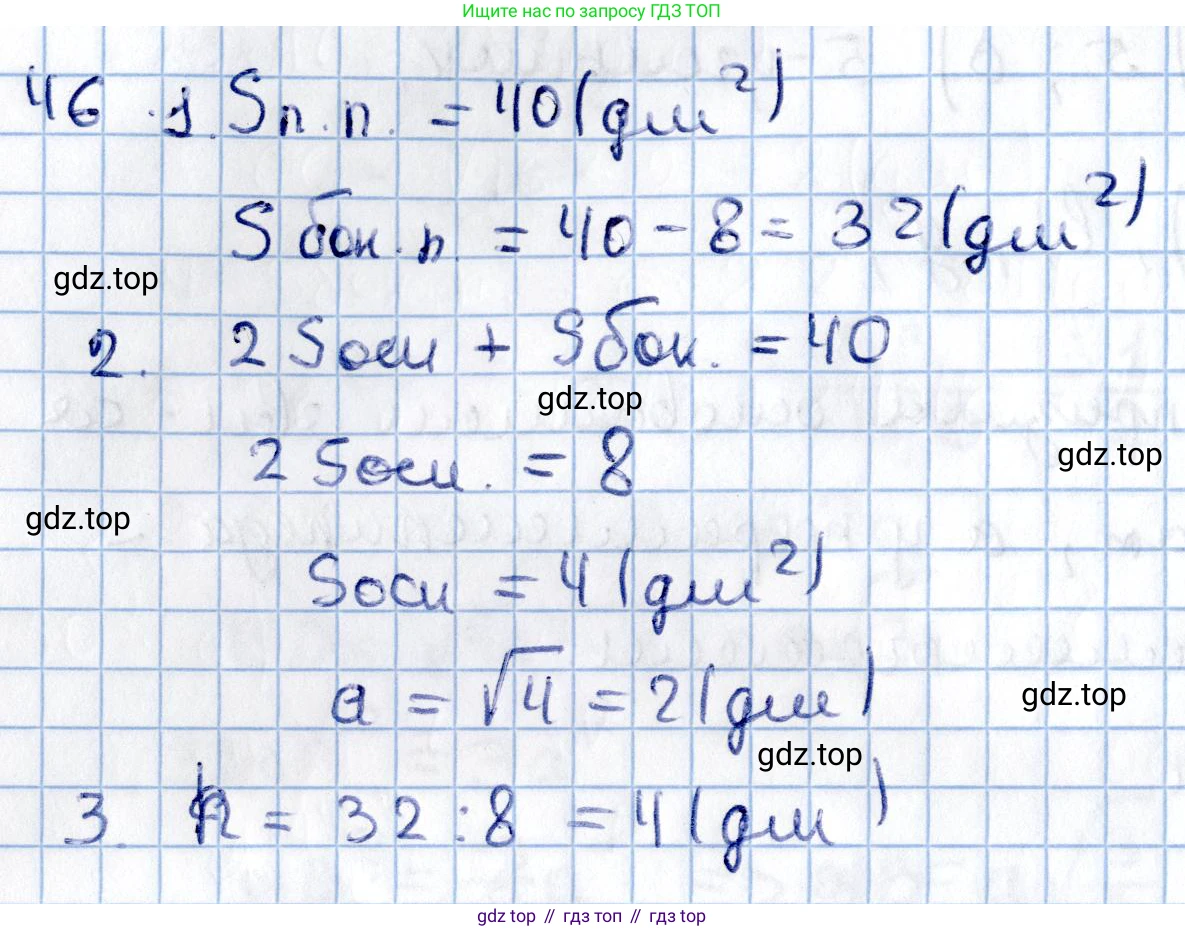 Ищите нас по запросу ГДЗ ТОП
46. 1. Sп.п. = 40 (дм²)
Sбок.п. = 40 - 8 = 32 (дм²)
gdz.top
2. 2Sосн + Sбок. = 40
gdz.top
2Sосн. = 8
gdz.top
gdz.top
Sосн = 4 (дм²)
a = √4 = 2 (дм)
gdz.top
gdz.top
3. h = 32 : 8 = 4 (дм)
gdz top // гдз топ // гдз top